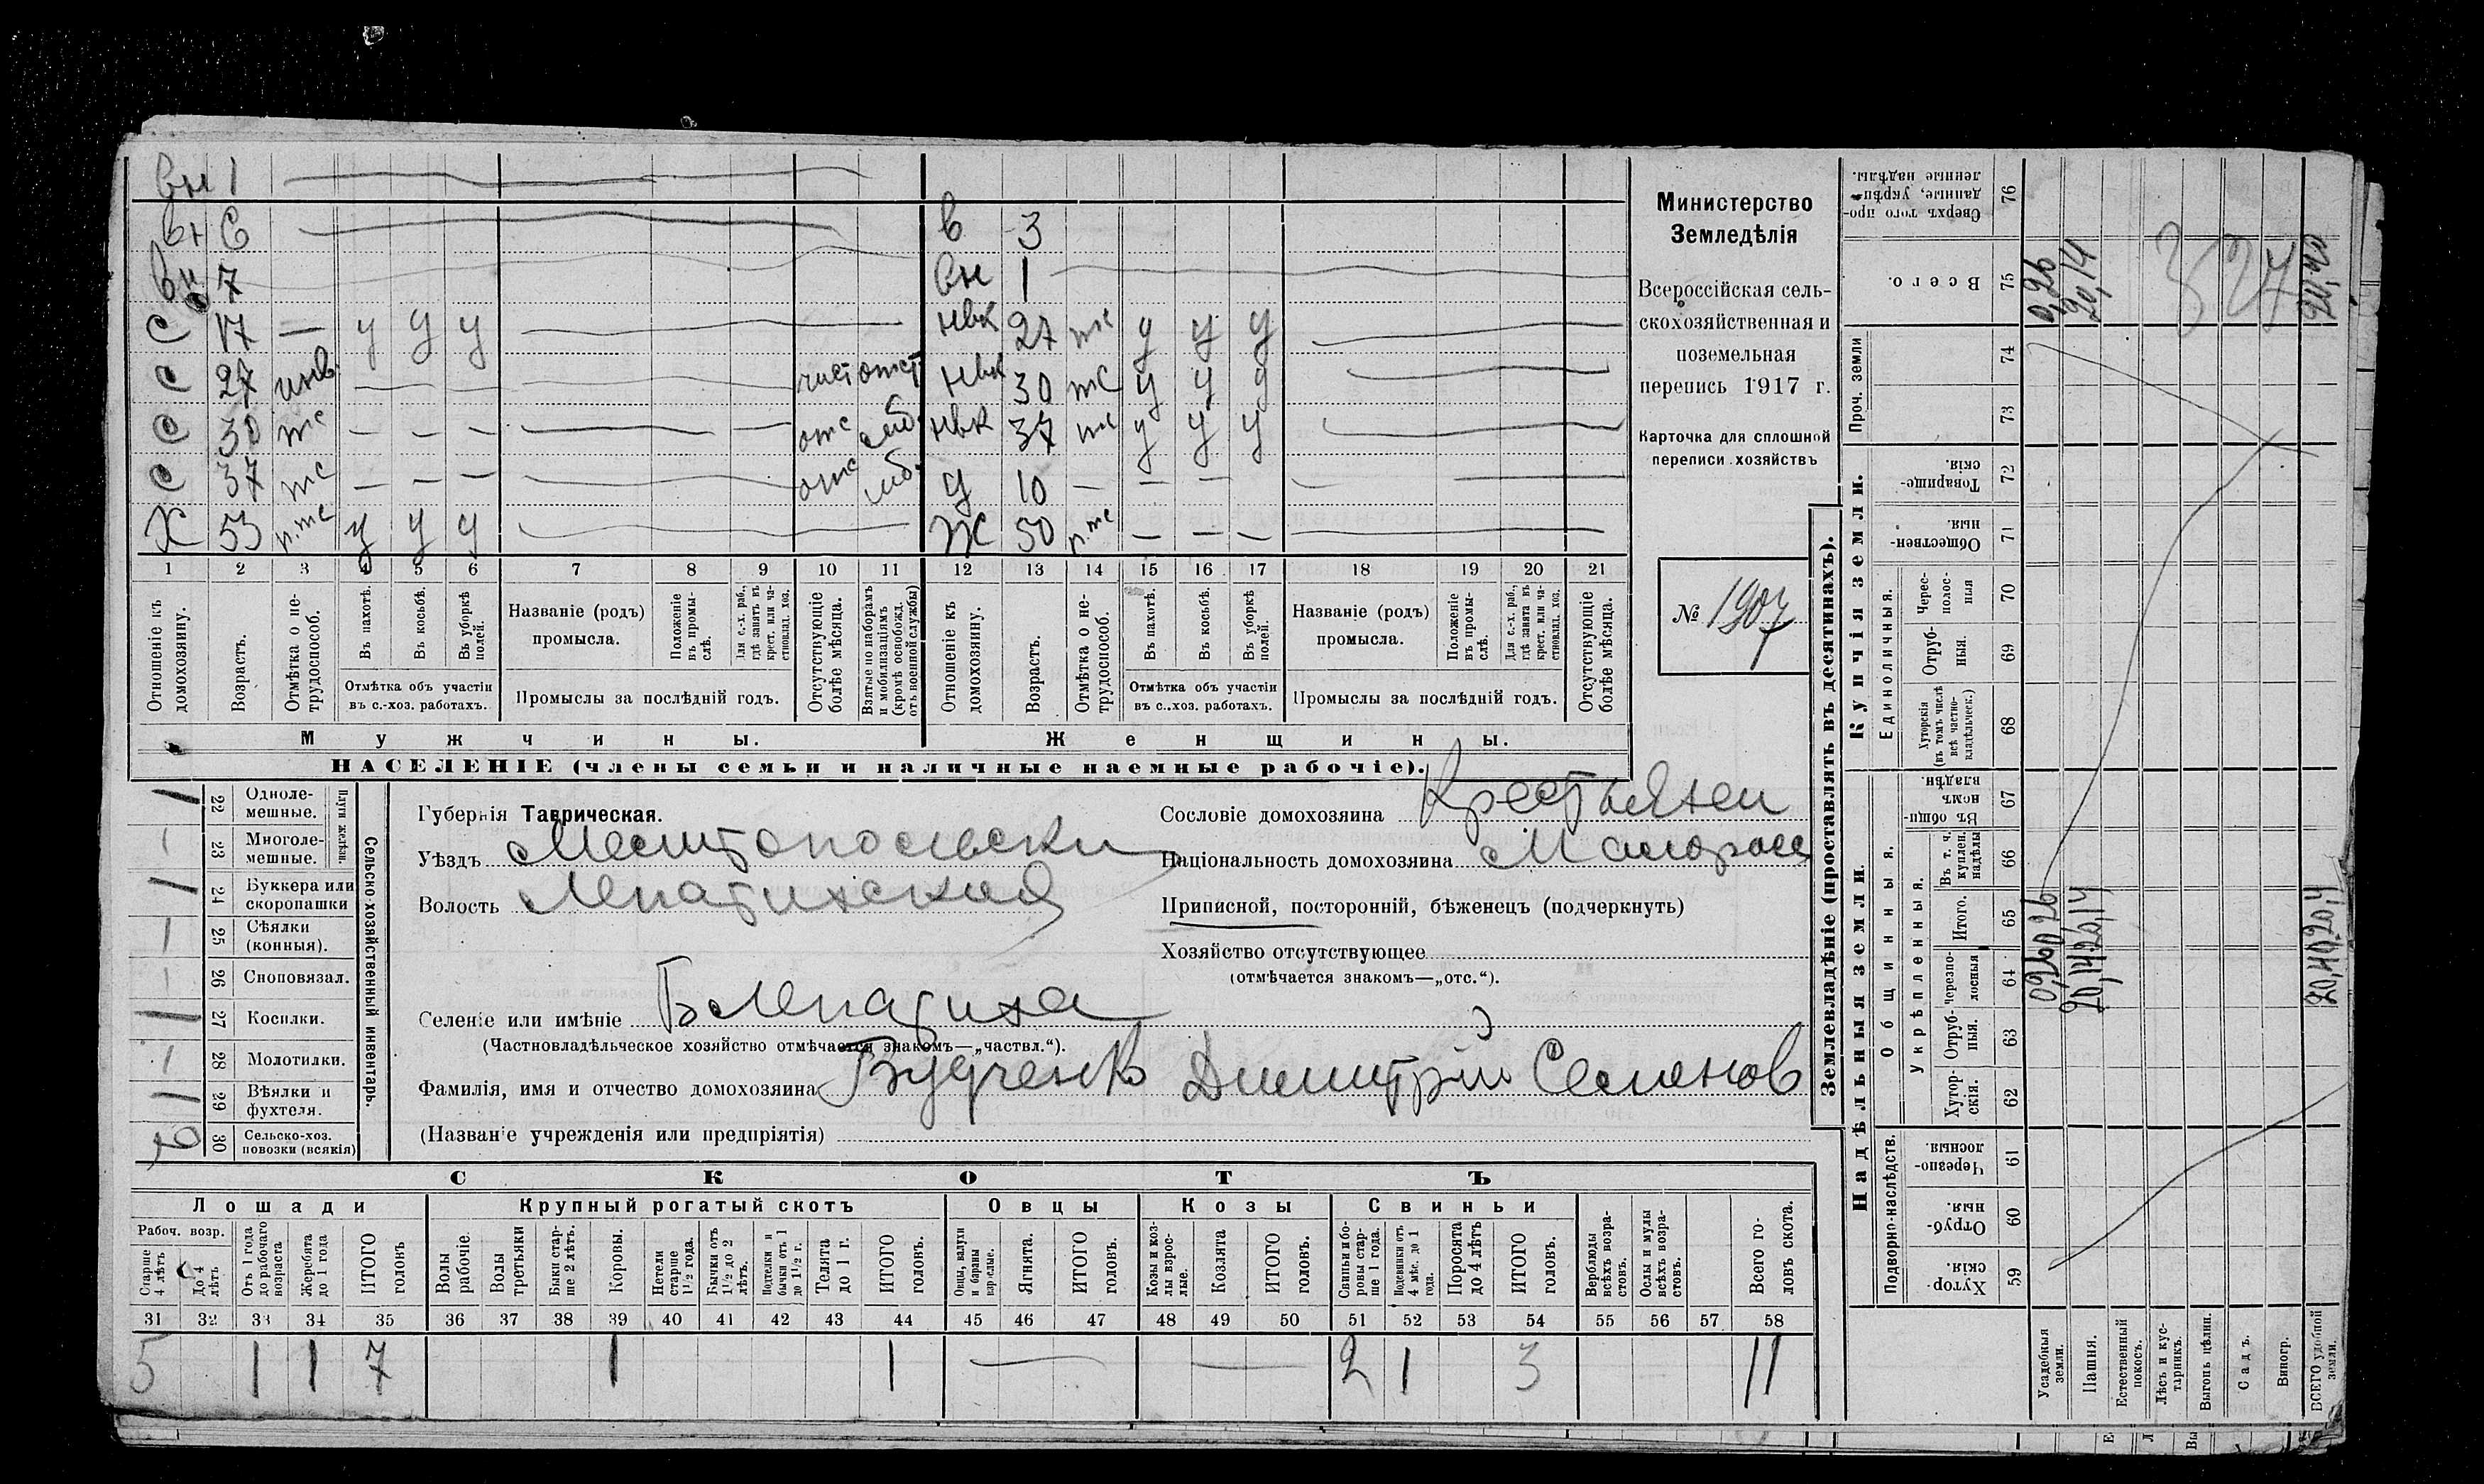 вн 1
вн 6 в 3
вн 7 вн 1
с 17 — у у у нвк 27 тс у у у
с 27 инв. — — нвк 30 тс у у у
с 30 тс — — — — — отс моб. нвк 37 тс у у у
с 37 тс — — — отс моб. д 10 — — —
Х 53 п.тс у у у Ж 50 п.тс — — —
1 2 3 4 5 6 7 8 9 10 11 12 13 14 15 16 17 18 19 20 21
Отношеніе къ домохозяину.
Возрастъ.
Отмѣтка о не-трудоспособ.
Въ пахотѣ.
Въ косьбѣ.
Въ уборкѣ полей.
Отмѣтка объ участіи
въ с.-хоз. работахъ.
Названіе (родъ)
промысла.
Положеніе въ промы-слѣ.
Для с.-х. раб., гдѣ занятъ въ крест. или ча-стновлад. хоз.
Промыслы за послѣдній годъ.
Отсутствующіе болѣе мѣсяца.
Взятые по наборамъ и мобилизаціямъ (кромѣ освобожд. отъ военной службы)
Отношеніе къ домохозяину.
Возрастъ.
Отмѣтка о не-трудоспособ.
Въ пахотѣ.
Въ косьбѣ.
Въ уборкѣ полей.
Отмѣтка объ участіи
въ с.-хоз. работахъ.
Названіе (родъ)
промысла.
Положеніе въ промы-слѣ.
Для с.-х. раб., гдѣ занятъ въ крест. или ча-стновлад. хоз.
Промыслы за послѣдній годъ.
Отсутствующіе болѣе мѣсяца.
Мужчины. Женщины.
НАСЕЛЕНІЕ (члены семьи и наличные наемные рабочіе).
Министерство
Земледѣлія
Всероссійская сель-
скохозяйственная и
поземельная
перепись 1917 г.
Карточка для сплошной
переписи хозяйствъ
№ 1907
Сельско-хозяйственный инвентарь.
Плуги желѣзн.
1 22 Одноле-мешные.
23 Многоле-мешные.
1 24 Буккера или скоропашки
25 Сѣялки (конныя).
26 Сноповязал.
1 27 Косилки.
28 Молотилки.
1 29 Вѣялки и фухтеля.
2 30 Сельско-хоз. повозки (всякія)
Губернія Таврическая.
Уѣздъ Мелитопольски
Волость Лепатихской
Селеніе или имѣніе Б Лепатиха
(Частновладѣльческое хозяйство отмѣчается знакомъ—„частвл.“).
Фамилія, имя и отчество домохозяина Будченко Димитрій Семенов
(Названіе учрежденія или предпріятія)
Сословіе домохозяина Крестьянен
Національность домохозяина Малоросс
Приписной, посторонній, бѣженецъ (подчеркнуть)
Хозяйство отсутствующее
(отмѣчается знакомъ—„отс.“).
СКОТЪ
Лошади Крупный рогатый скотъ Овцы Козы Свиньи
Рабоч. возр.
Старше 4 лѣтъ
До 4 лѣтъ
Отъ 1 года до рабочаго возраста
Жеребята до 1 года
ИТОГО головъ
Волы рабочіе.
Волы третьяки
Быки стар-ше 2 лѣтъ.
Коровы.
Нетели старше 1½ года.
Бычки отъ 1½ до 2 лѣтъ.
Подтелки и бычки отъ 1 до 1½ г.
Телята до 1 г.
ИТОГО головъ.
Овцы, валухи и бараны взрослые.
Ягнята.
ИТОГО головъ.
Козы и коз-лы взрос-лые.
Козлята
ИТОГО головъ.
Свиньи и бо-ровы стар-ше 1 года.
Подсвинки отъ 4 мѣс. до 1 года.
Поросята до 4 лѣтъ
ИТОГО головъ.
Верблюды всѣхъ возра-стовъ.
Ослы и мулы всѣхъ возра-стовъ.
Всего го-ловъ скота.
31 32 33 34 35 36 37 38 39 40 41 42 43 44 45 46 47 48 49 50 51 52 53 54 55 56 57 58
5 1 1 7 1 1 — — 2 1 3 11
Землевладѣніе (проставлять въ десятинахъ).
Надѣльныя земли. Купчія земли.
Подворно-наслѣдств.
Общинныя.
Укрѣпленныя.
Единоличныя.
Проч. земли
Сверхъ того про-данные, укрѣп-ленные надѣлы. 76
Всего. 75
74
73
Товарище-скія. 72
Обществен-ныя. 71
Черес-полос-ныя 70
Отруб-ныя. 69
Хуторскія (въ томъ числѣ всѣ частно-владѣльческ.) 68
Въ общин номъ владѣн. 67
Въ т. ч. куплен. надѣлы 66
Итого. 65
черезпо-лосныя 64
Отруб-ныя. 63
Хутор-скія. 62
Черезпо-лосныя. 61
Отруб-ныя. 60
Хутор-скія. 59
Усадебныя земли. 0,26 0,26 0,26
Пашня. 20,14 20,14 20,14
Естественный покосъ.
Лѣсъ и кус-тарникъ.
Выгонъ цѣлин.
Садъ.
Виногр.
ВСЕГО удобной земли. 20,40 20,40
327